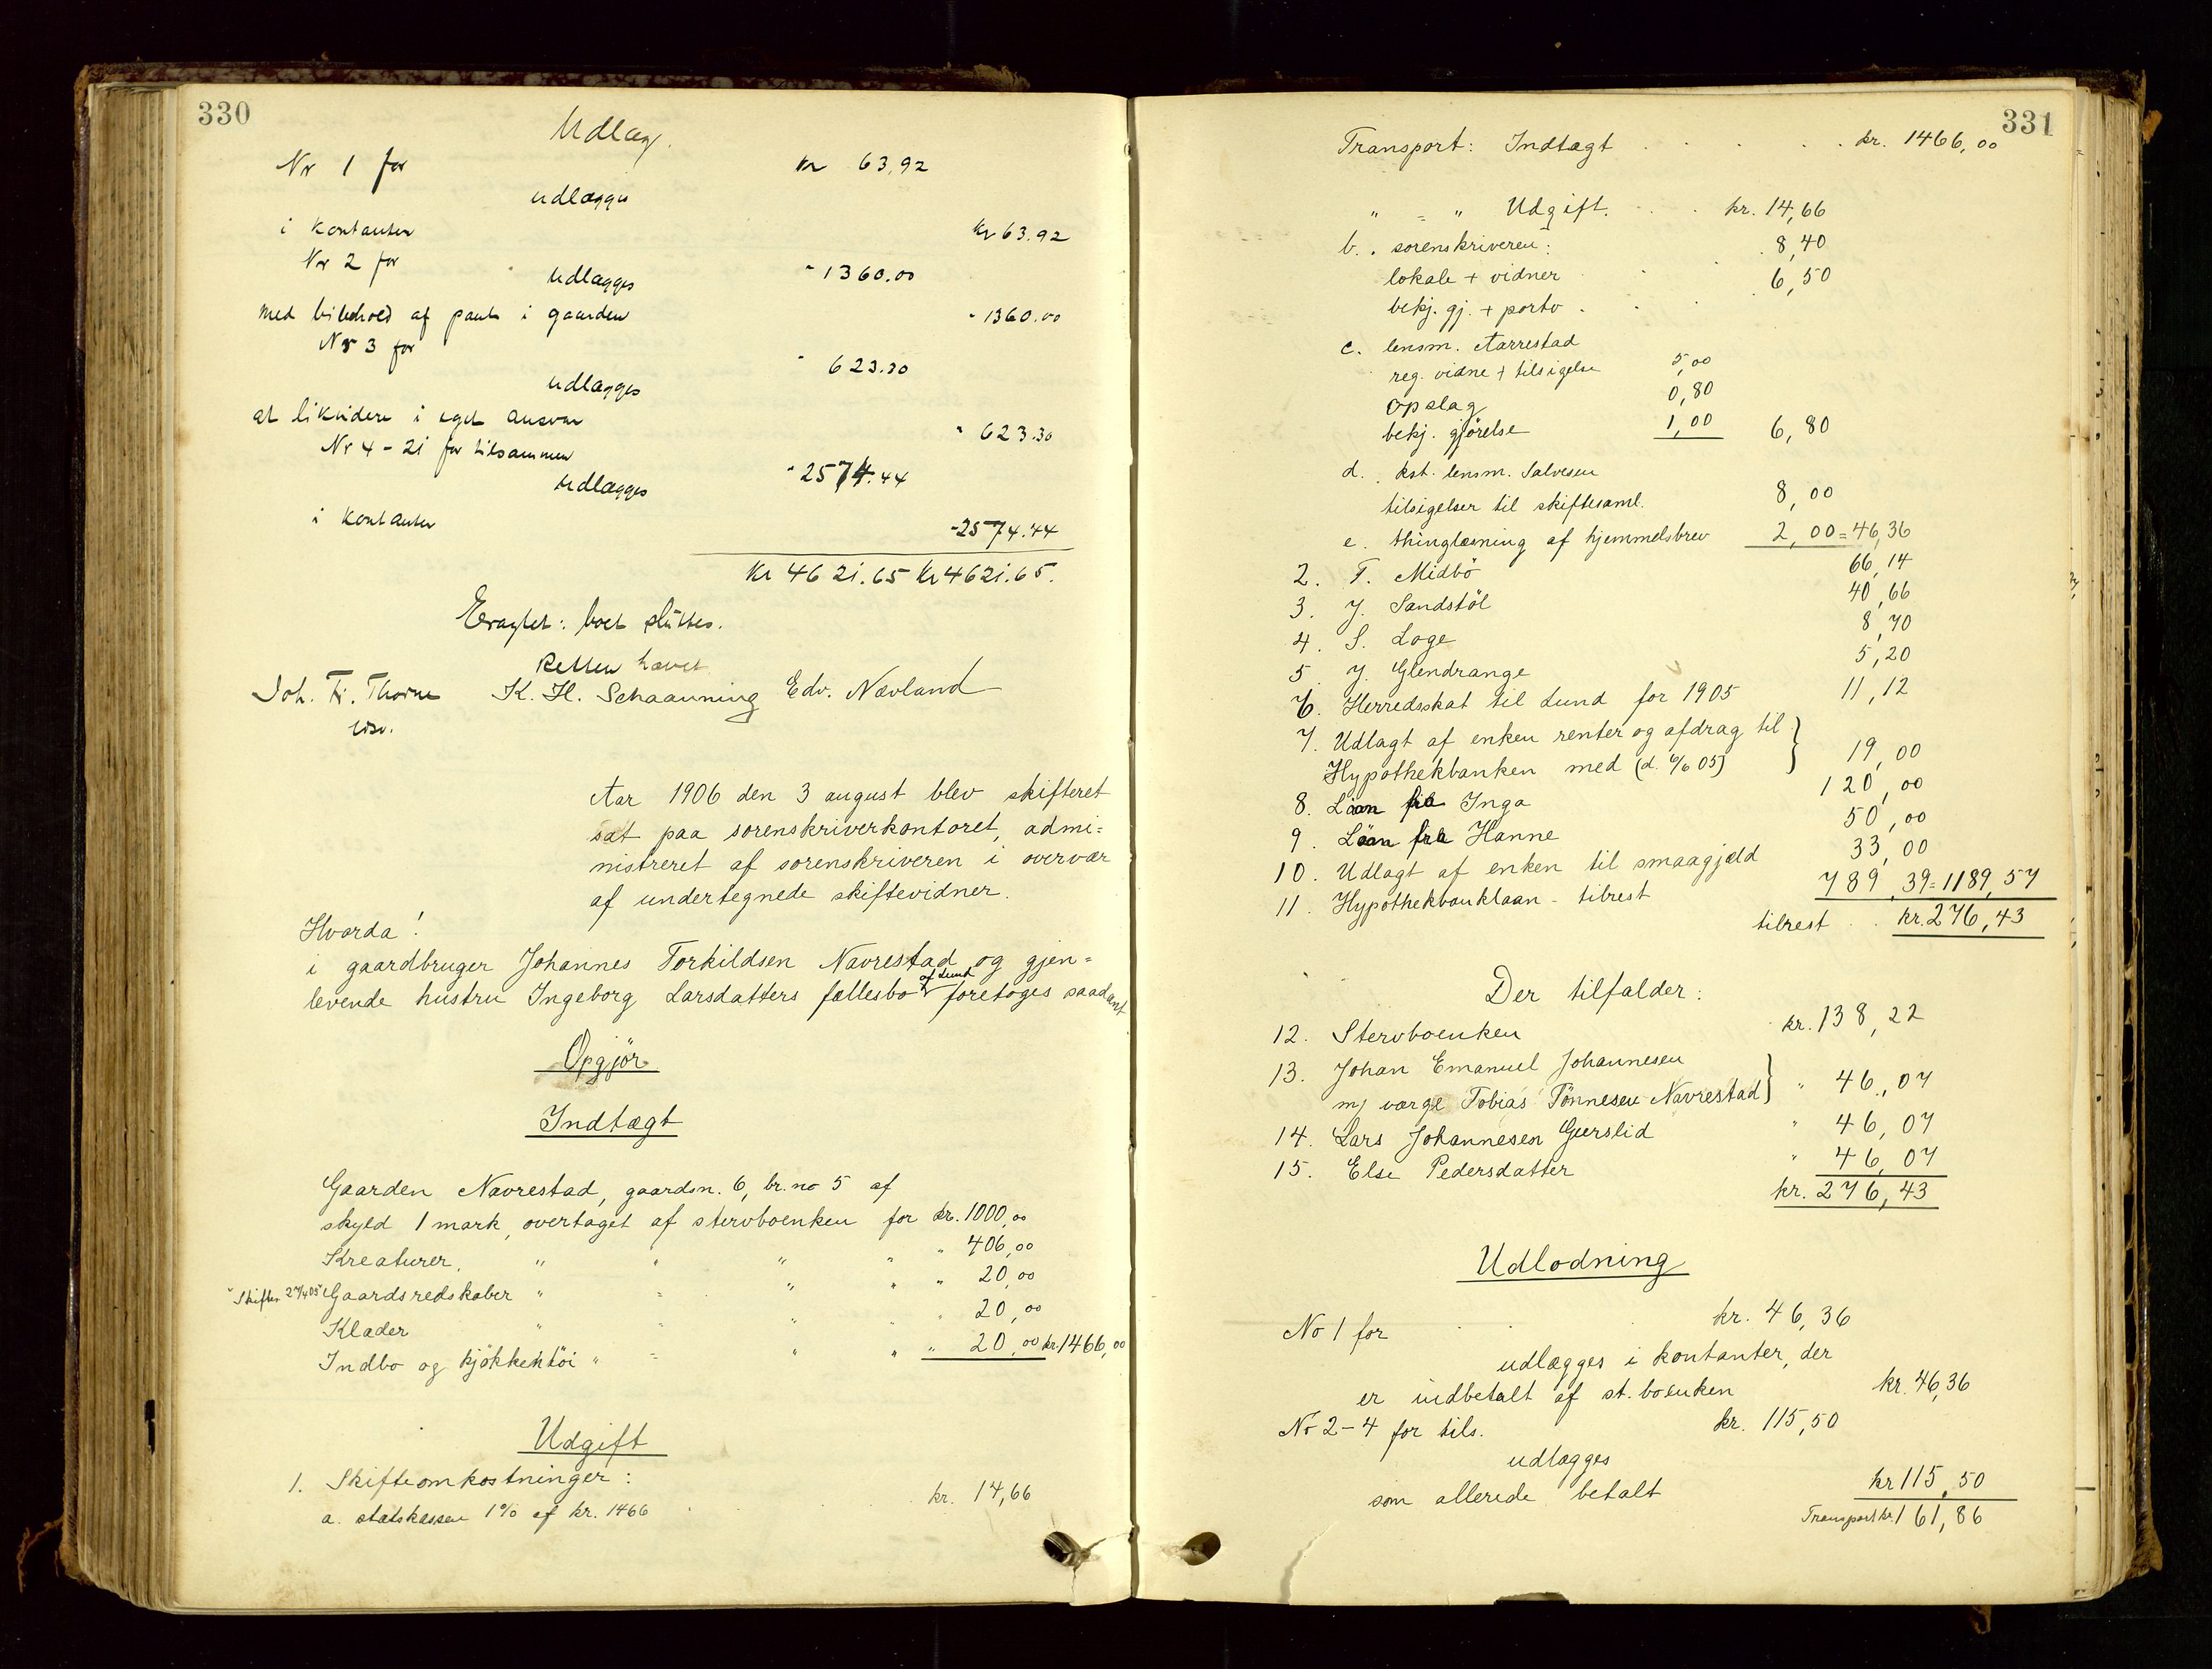 330
Udlæg.
Nr 1 for kr 63.92
udlægges
i kontanter kr 63.92
Nr 2 for " 1360.00
udlægges
med bibehold af pant i gaarden " 1360.00
Nr 3 for " 623.30
udlægges
at likvidere i eget ansvar " 623.30
Nr 4 - 21 for tilsammen " 2574.44
udlægges
i kontanter - 2574.44
kr 4621.65 kr 4621.65.
Eragtet: boet sluttes.
Retten hævet
Joh. Fr. Thorne K. H. Schaanning Edv. Nævland
Aar 1906 den 3 august blev skifteret
sat paa sorenskriverkontoret, admi=
nistreret af sorenskriveren i overvær
af undertegnede skiftevidner.
Hvorda!
i gaardbruger Johannes Torkildsen Navrestad og gjen=
levende hustru Ingeborg Larsdatters fællesbo af Lund foretoges saadant
Opgjør
Indtægt
Gaarden Navrestad, gaardsn. 6, br. no 5 af
skyld 1 mark, overtaget af stervboenken for kr. 1000,00
Kreaturer, " " " " " 406,00
"Skiftes 27/4 05" Gaardsredskaber " " " " " 20,00
Klæder " " " " " 20,00
Indbo og kjøkkentöi " " " " " 20,00 kr. 1466,00
Udgift
1. Skifteomkostninger:
a. statskassen 1% af kr. 1466 kr. 14,66
331
Transport: Indtægt . . . . . kr. 1466,00
" = " Udgift. . . kr. 14,66
b. sorenskriveren:
lokale + vidner 8,40
bekj. gj. + porto . . 6,50
c. lensm. Aarrestad
reg. vidne + tilsigelse 5,00
opslag 0,80
bekj. gjørelse 1,00 6,80
d. kst. lensm. Salvesen
tilsigelser til skiftesaml. 8,00
e. thinglæsning af hjemmelsbrev 2,00 = 46,36
2. T. Midbö 66,14
3. J. Sandstöl 40,66
4. S. Loge 8,70
5. J. Glendrange 5,20
6. Herredsskat til Lund for 1905 11,12
7. Udlagt af enken renter og afdrag til
Hypothekbanken med (d. 6/6 05) } 19,00
8. Laan fra Inga 120,00
9. Laan fra Hanne 50,00
10. Udlagt af enken til smaagjæld 33,00
11. Hypothekbanklaan - tilrest 789,39 = 1189,57
tilrest . . kr. 276,43
Der tilfalder:
12. Stervboenken kr. 138,22
13. Johan Emanuel Johannesen
m/ værge Tobias Tönnesen Navrestad } " 46,07
14. Lars Johannesen Gurslid " 46,07
15. Else Pedersdatter " 46,07
kr. 276,43
Udlodning
No 1 for . . kr. 46,36
udlægges i kontanter, der
er indbetalt af st. boenken kr. 46,36
No 2-4 for tils. kr. 115,50
udlægges
som allerede betalt kr 115,50
Transport kr. 161,86